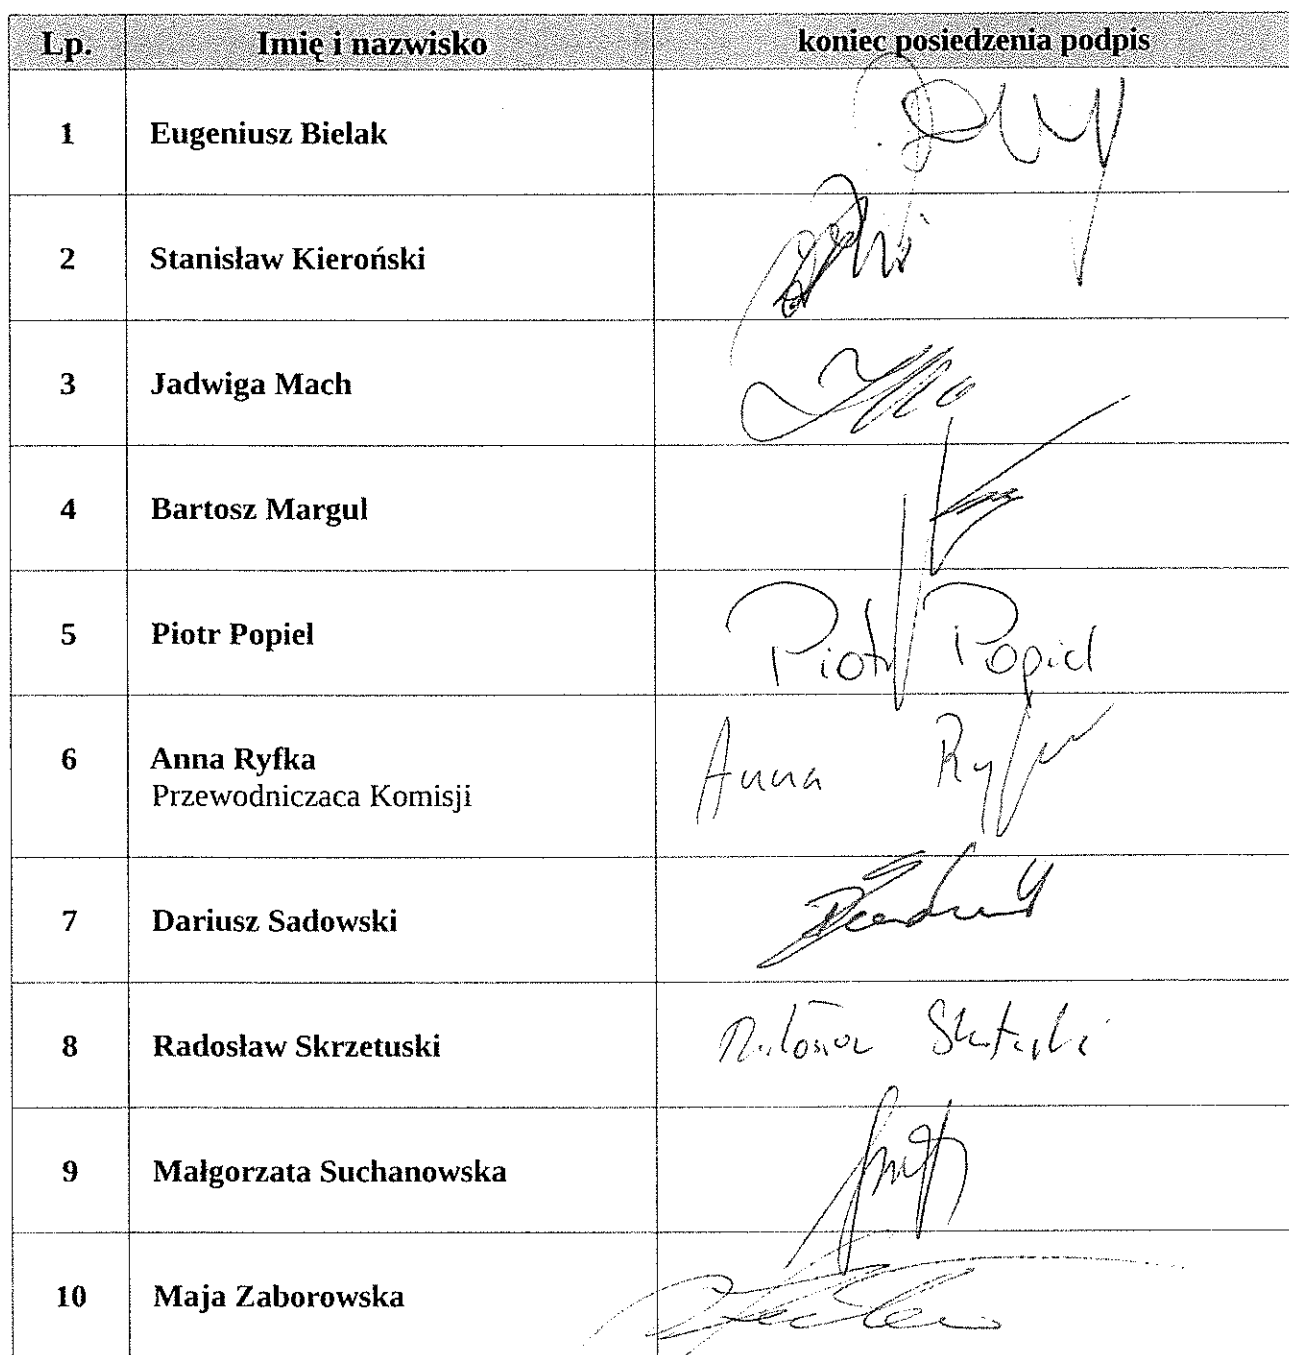 Lp. Imię i nazwisko koniec posiedzenia podpis
1 Eugeniusz Bielak
2 Stanisław Kieroński
3 Jadwiga Mach
4 Bartosz Margul
5 Piotr Popiel Piotr Popiel
6 Anna Ryfka Anna Ryfka
Przewodniczaca Komisji
7 Dariusz Sadowski
8 Radosław Skrzetuski
9 Małgorzata Suchanowska
10 Maja Zaborowska